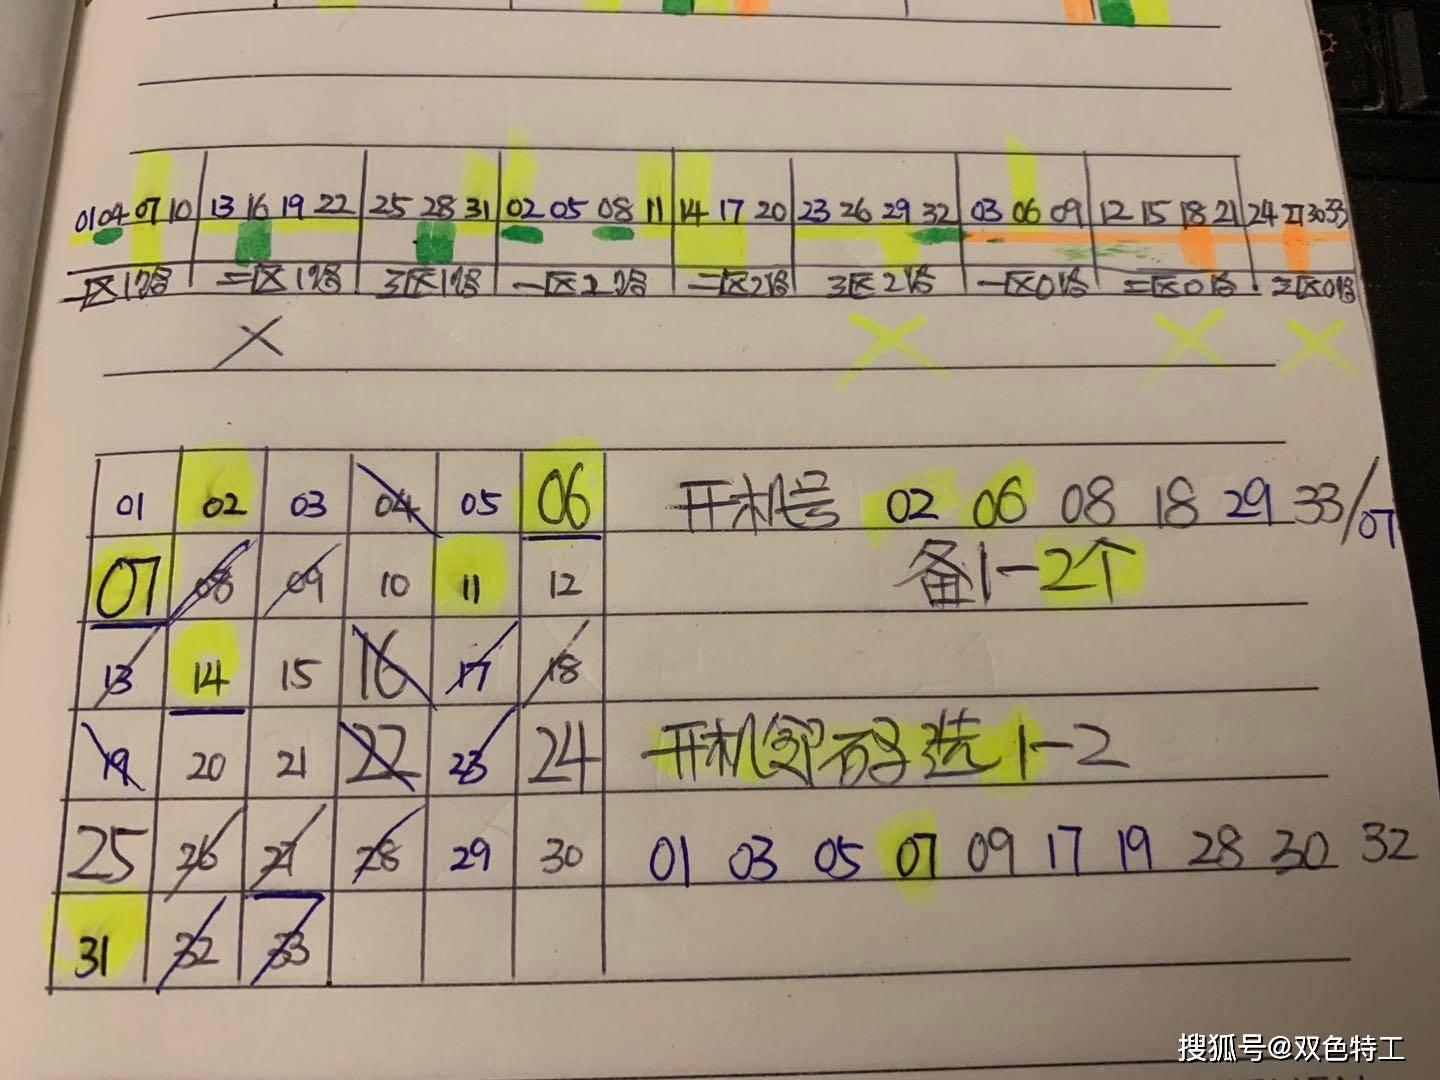 01 04 07 10 13 16 19 22 25 28 31 02 05 08 11 14 17 20 23 26 29 32 03 06 09 12 15 18 21 24 27 30 33
一区1路 二区1路 3区1路 一区2路 二区2路 3区2路 一区0路 二区0路 三区0路
01 02 03 04 05 06 开机号 02 06 08 18 29 33/07
07 08 09 10 11 12 备1-2个
13 14 15 16 17 18
19 20 21 22 23 24 开机邻码选1-2
25 26 27 28 29 30 01 03 05 07 09 17 19 28 30 32
31 32 33
搜狐号@双色特工